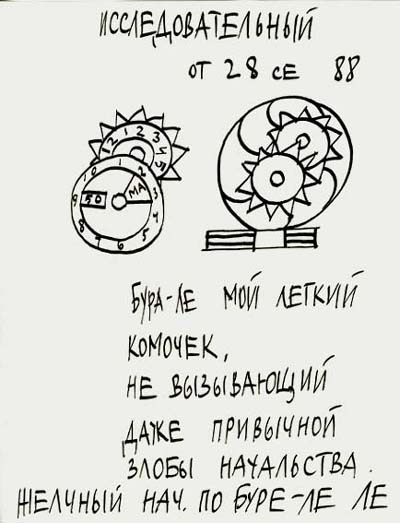 ИССЛЕДОВАТЕЛЬНЫЙ
ОТ 28 СЕ 88
12 1 2 3 4 5
10 1 2 3 4 5 6 7 8 9
50 МА
БУРА-ЛЕ МОЙ ЛЕГКИЙ
КОМОЧЕК,
НЕ ВЫЗЫВАЮЩИЙ
ДАЖЕ ПРИВЫЧНОЙ
ЗЛОБЫ НАЧАЛЬСТВА.
ЖЕЛЧНЫЙ НАЧ. ПО БУРЕ-ЛЕ ЛЕ